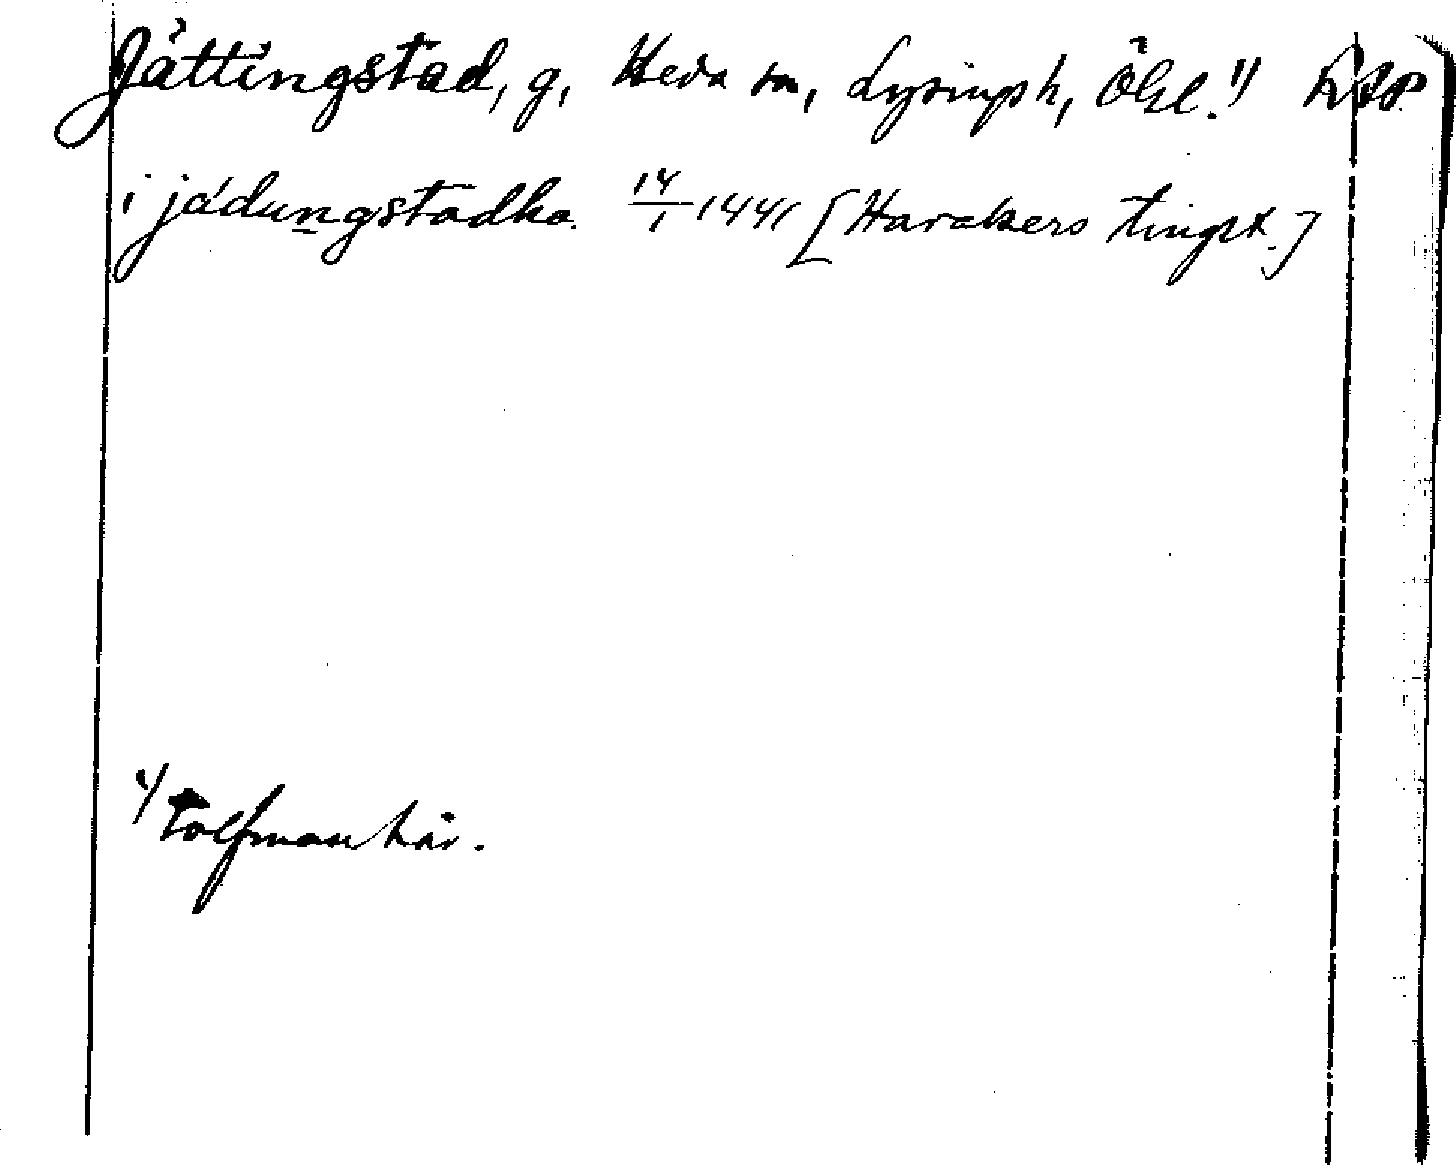 Jättingstad, g, Heda sn, Lysings h, Ögl.¹⁾ RAP.
i jädungstadha. 14/1 1441 [Harakers tingst.]
¹⁾ Tolfman här.